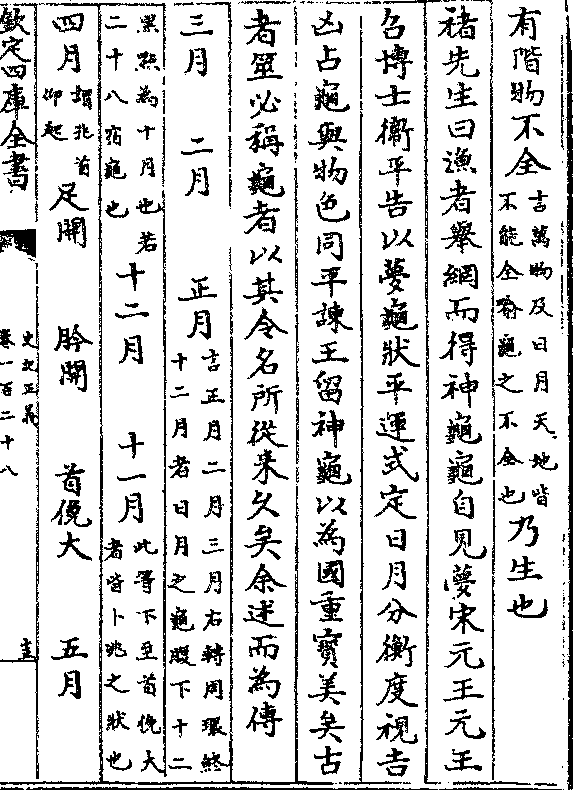 有階物不全言萬物及日月天地皆不能全喻龜之不全也乃生也
褚先生曰漁者舉網而得神龜龜自見夢宋元王元王
召博士衛平告以夢龜狀平運式定日月分衡度視吉
凶占龜與物色同平諫王留神龜以為國重寶美矣古
者筮必稱龜者以其令名所從来久矣余述而為傳
三月 二月 正月言正月二月三月右轉周環終十二月者日月之龜腹下十二
黑㸃為十月也若二十八宿龜也十二月 十一月此等下至首俛大者皆卜兆之狀也
四月謂兆首仰起足開 肣開 首俛大 五月
欽定四庫全書 史記正義 卷一百二十八